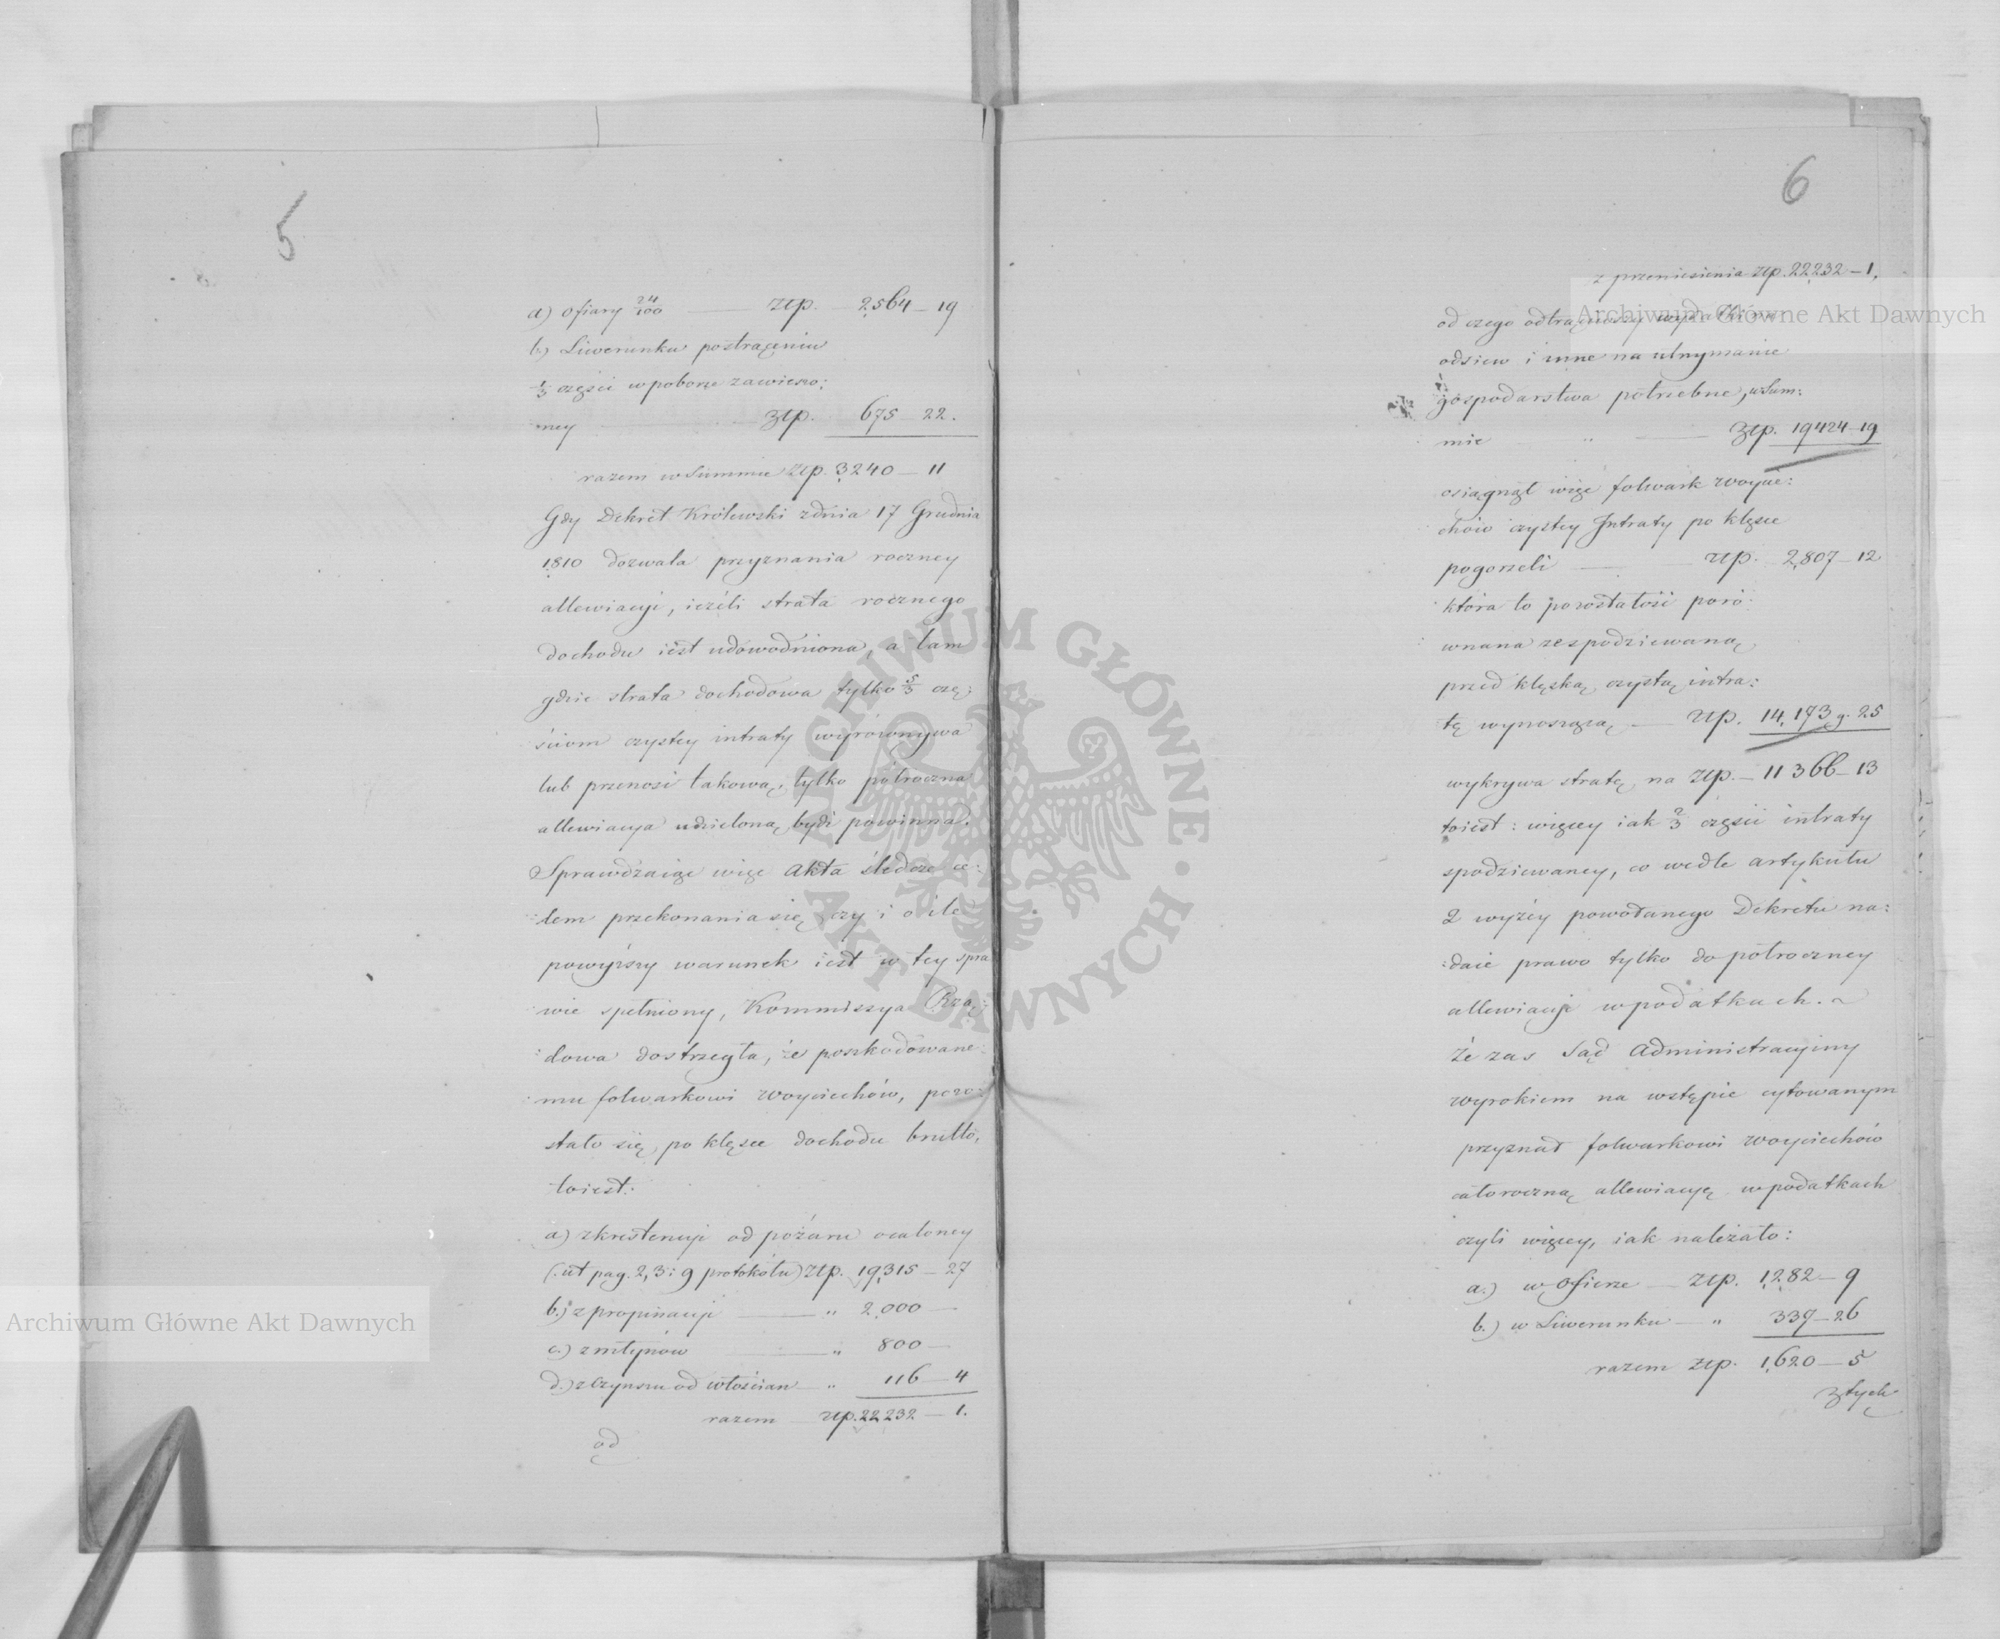 5
a) Ofiary 24/100 — złp. 2,564 — 19
b) Liwerunku po strąceniu
1/3 części w poborze zawieszo:
ney złp. 675 — 22.
razem w Summie złp. 3240 — 11
Gdy Dekret Królewski z dnia 17 Grudnia
1810 dozwala przyznania roczney
allewiacyi, ieżeli strata rocznego
dochodu iest udowodniona, a tam
gdzie strata dochodowa tylko 5/3 czę:
ściom czystey intraty wyrównywa
lub przenosi takową, tylko półroczna
allewiacya udzieloną bydź powinna.
Sprawdzaiąc więc Akta śledcze ce:
lem przekonania się, czy i o ile
powyższy warunek iest w tey spra
wie spełniony, Kommissya Rzą:
dowa dostrzegła, że poszkodowane:
mu folwarkowi Woyciechów, pozo:
stało się, po klęsce dochodu brutto,
toiest:
a) z krestencyi od pożaru ocaloney
(: ut pag. 2, 3 i 9 protokołu) złp. 19,315 — 27
b.) z propinacyi — " 2,000 —
c.) z młynów — " 800 —
d.) z czynszu od włościan — " 116 — 4
razem — złp. 22,232 — 1.
od
6
z przeniesienia złp. 22,232 — 1,
od czego odtrąciwszy wydatki na
odsiew i inne na utrzymanie
gospodarstwa potrzebne, w Sum:
mie " — złp. 19424 — 19
osiągnął więc folwark Woycie:
chów czystey Intraty po klęsce
pogorzeli — złp. 2,807 — 12
która to pozostałość poró:
wnana ze spodziewaną
przed klęską czystą intra:
tę wynoszącą — złp. 14,173 g. 25
wykrywa stratę na złp. — 11 366 — 13
toiest: więcey iak 2/3 części intraty
spodziewaney, co wedle artykułu
2 wyżey powołanego Dekretu na:
daie prawo tylko do półroczney
allewiacyi w podatkach. ~
Że zas Sąd Administracyiny
wyrokiem na wstępie cytowanym
przyznał folwarkowi Woyciechów
całoroczną allewiacyę w podatkach
czyli więcey, iak należało:
a.) w Ofierze — złp. 1,282 — 9
b.) w Liwerunku — " 339 — 26
razem złp. 1,620 — 5
z tych
Archiwum Główne Akt Dawnych
Archiwum Główne Akt Dawnych
ARCHIWUM GŁÓWNE · AKT DAWNYCH ·